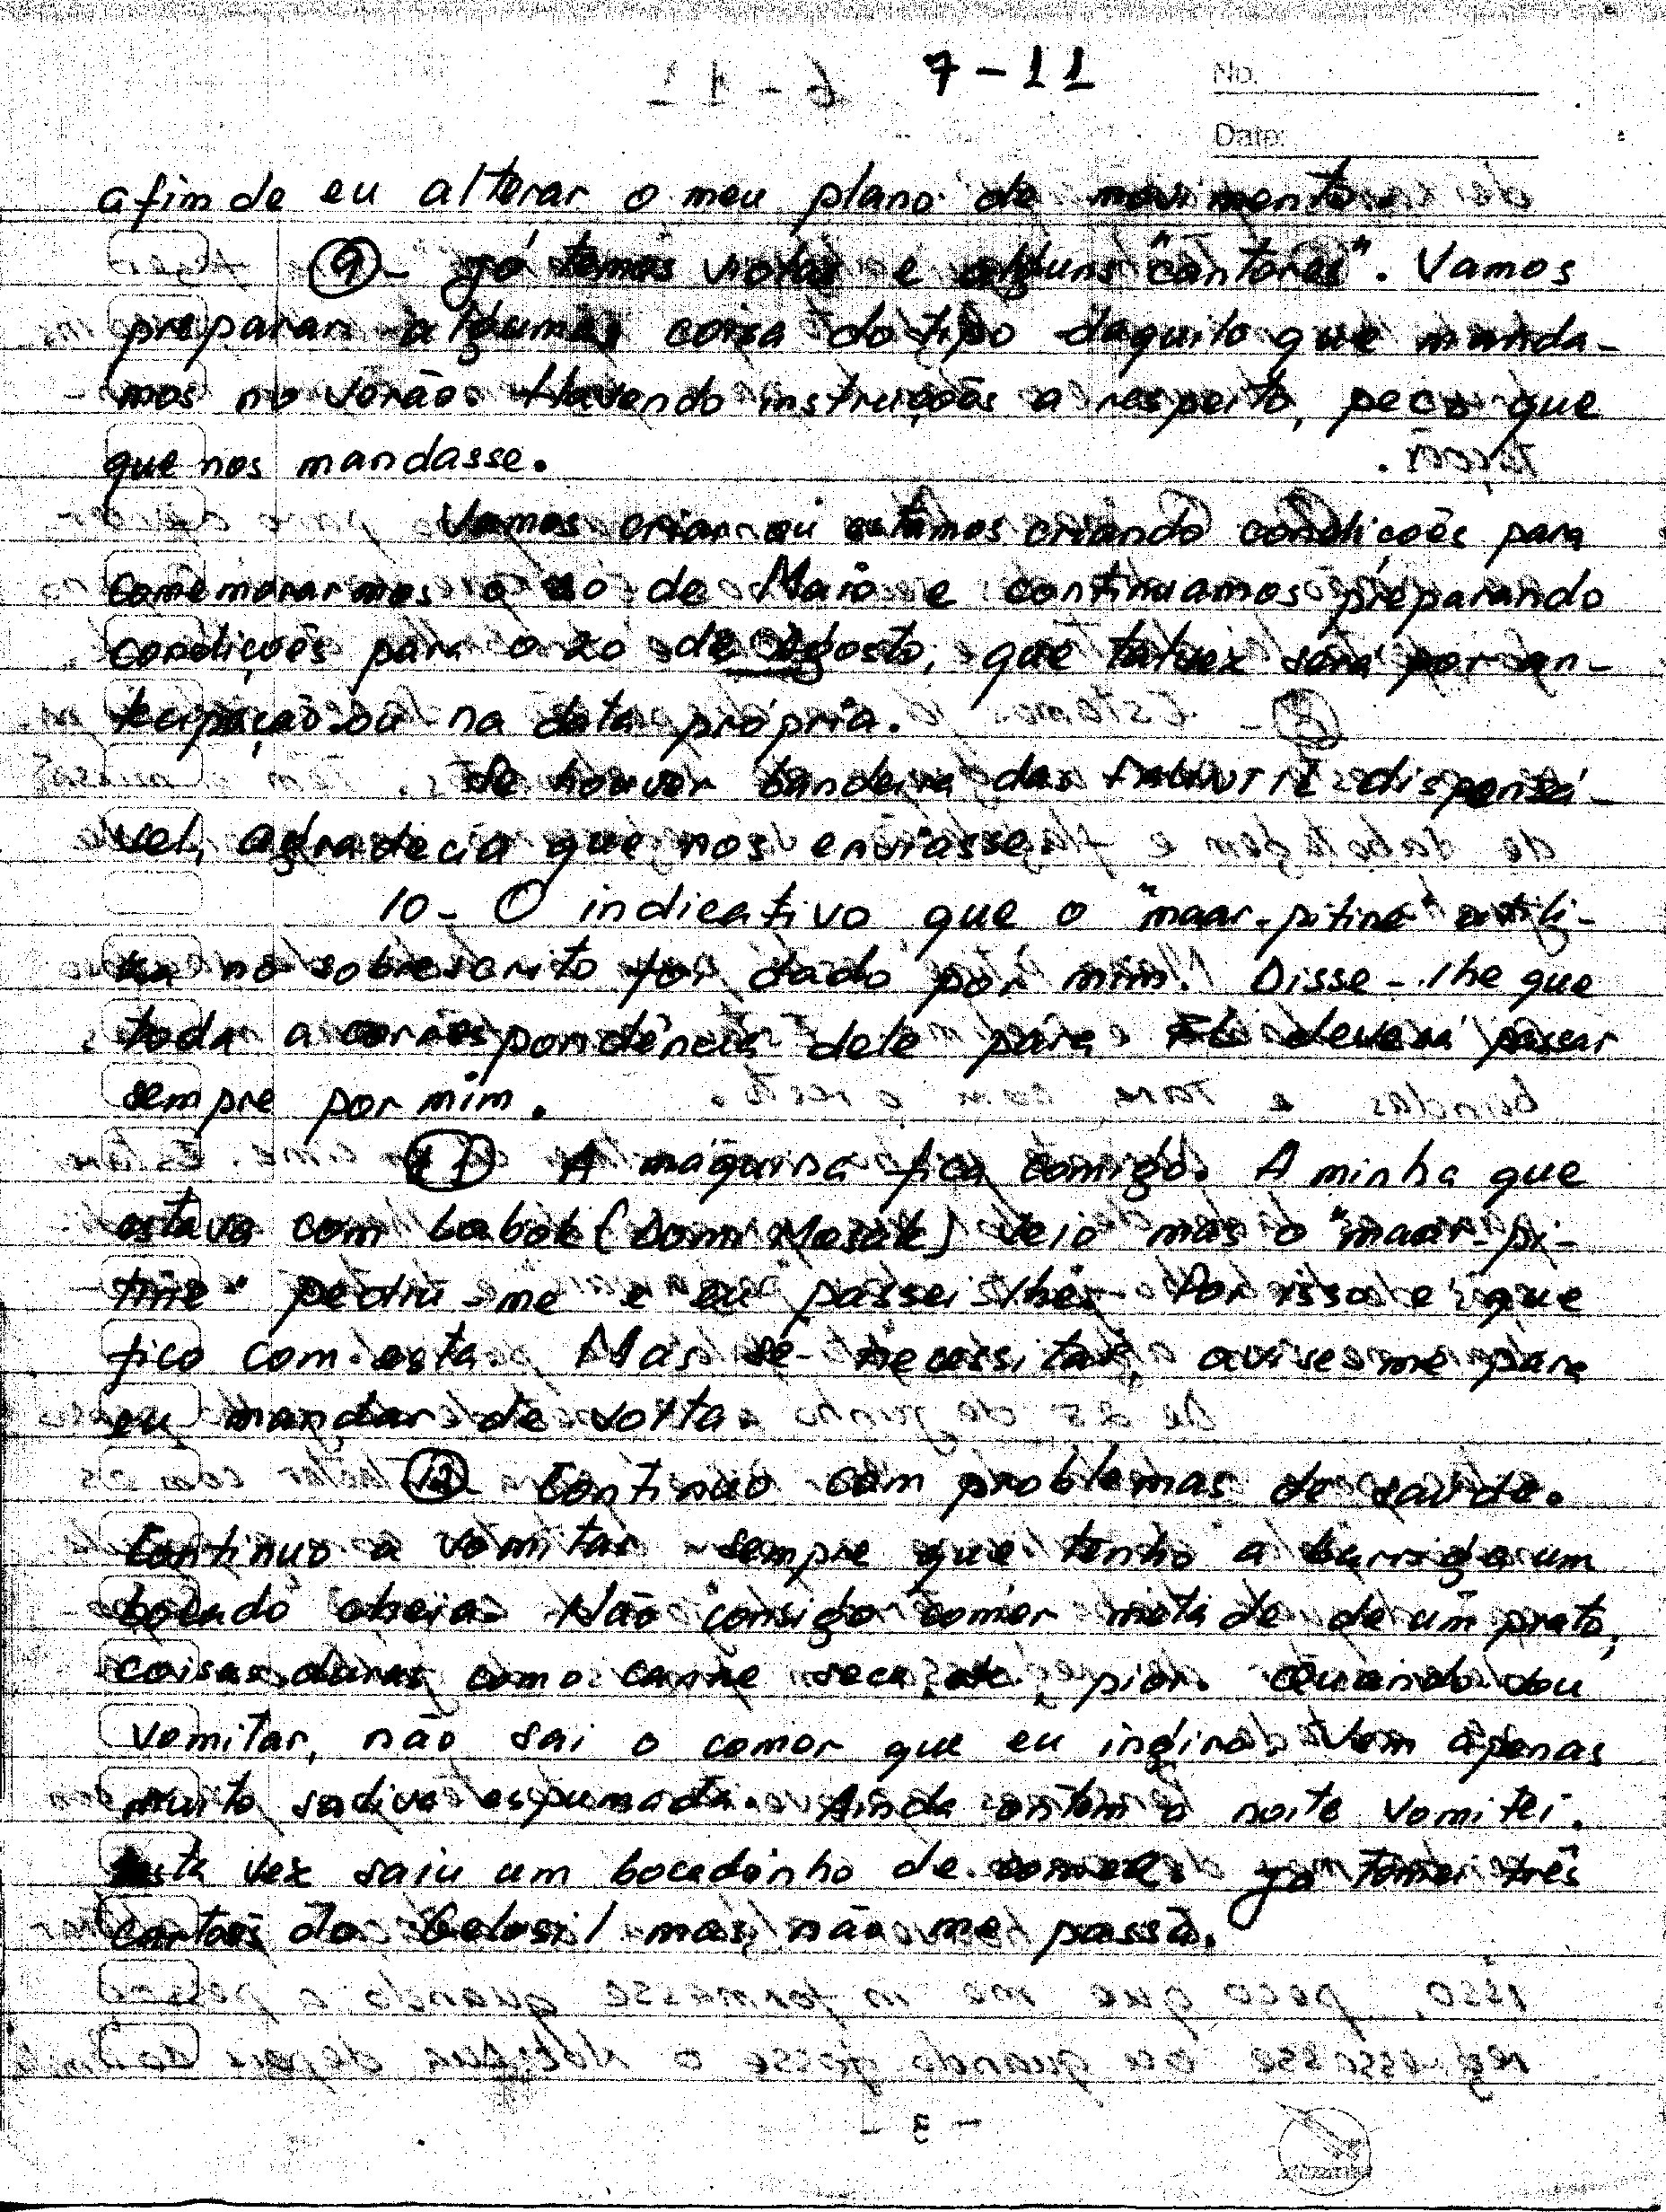 7-11
No.
Date:
afim de eu alterar o meu plano de movimento.
9- Já temos violas e alguns "cantores". Vamos
preparar alguma coisa do tipo daquilo que manda-
mos no verão. Havendo instruções a respeito, peço que
que nos mandasse.
Vamos criar ou estamos criando condições para
comemorarmos o 20 de Maio e continuamos preparando
condições para o 20 de Agosto, que talvez será por an-
tecipação ou na data própria.
Se houver bandeira das FALINTIL dispensá-
vel, agradecia que nos enviasse.
10- O indicativo que o "maar-pitine" utili-
za no sobrescrito foi dado por mim. Disse-lhe que
toda a correspondência dele para deverá passar
sempre por mim.
11 A máquina fica comigo. A minha que
estava com babok (Domi Mesak) veio mas o "maar-pi-
tine" pediu-me e eu passei-lhe. Por isso é que
fico com esta. Mas se necessitar, avise-me para
eu mandar de volta.
12- Continuo com problemas de saúde.
Continuo a vomitar sempre que tenho a barriga um
bocado cheia. Não consigo comer metade de um prato,
coisas duras como carne seca, etc, pior. Quando vou
vomitar, não sai o comer que eu ingiro. Vem apenas
muito saliva espumada. Ainda ontem à noite vomitei.
Esta vez saiu um bocadinho de comer. Já tomei três
cartões do Gelosil mas não me passa.